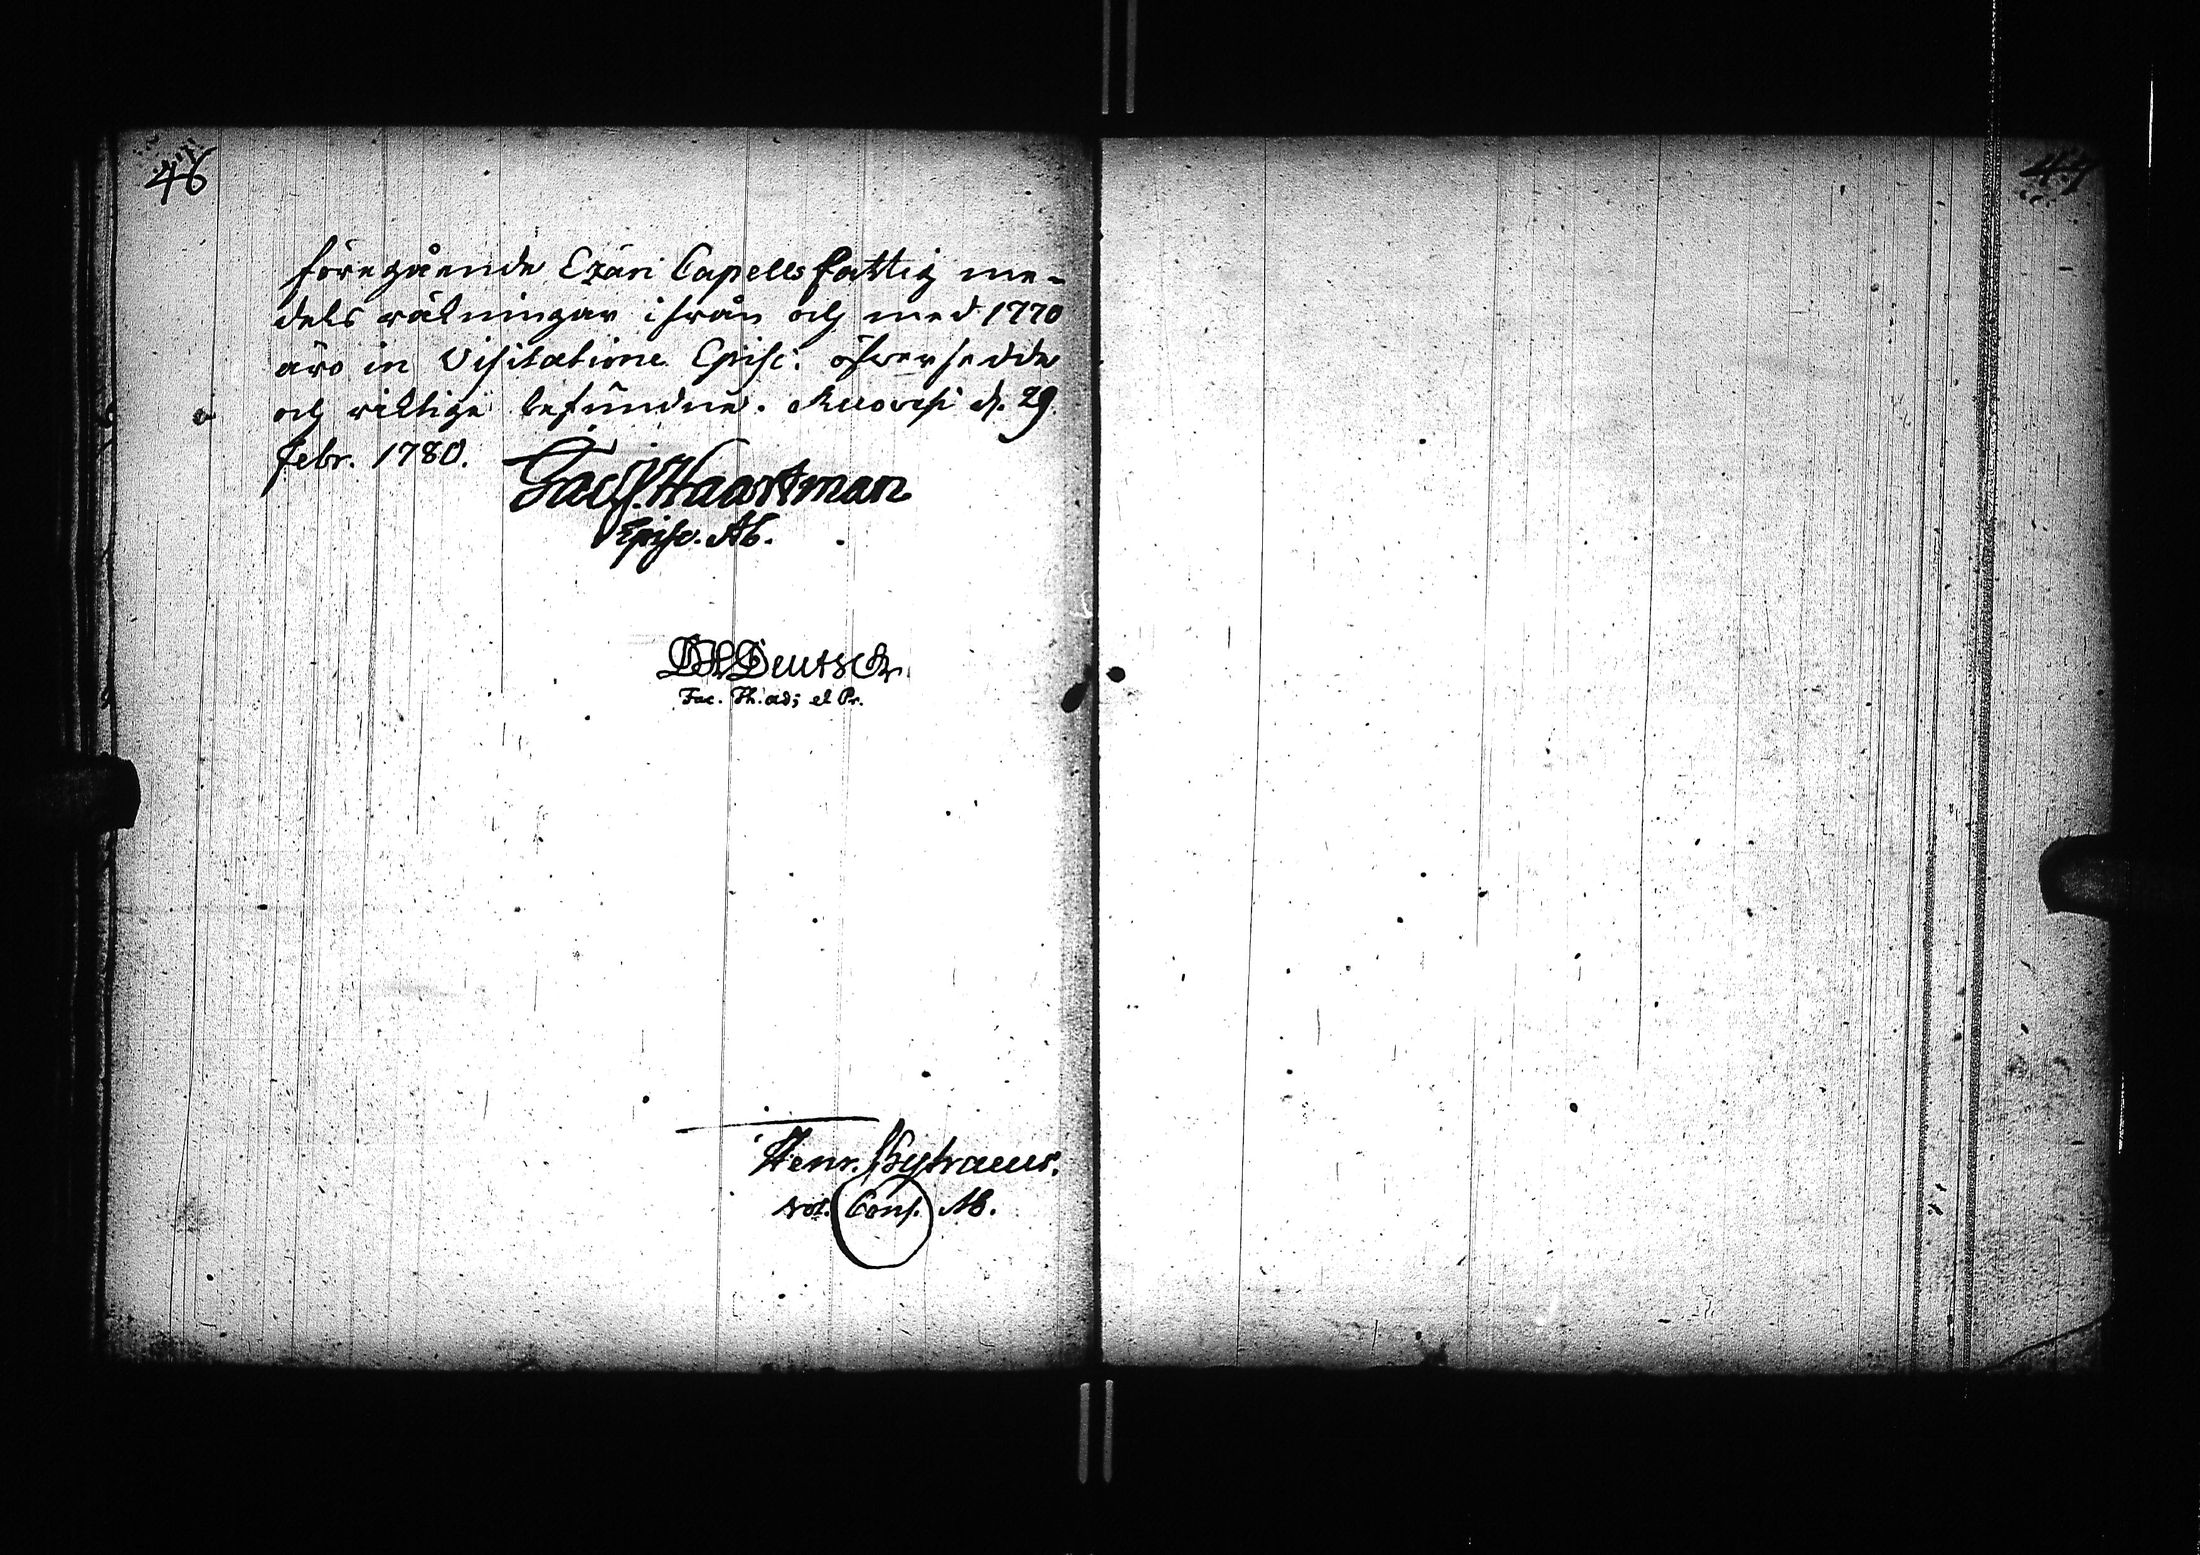 46
föregående Ezäri Capells fattig me-
dels räkningar ifrån och med 1770
äro in Visitatione Episc. öfversedde
och riktige befundne. Ruovesi d. 29
febr. 1780.
Jac. Haartman
Episc. Ab.
Deutsch
Fac. Th. adj et Pr.
Henr.
Not. Cons. Ab.
47